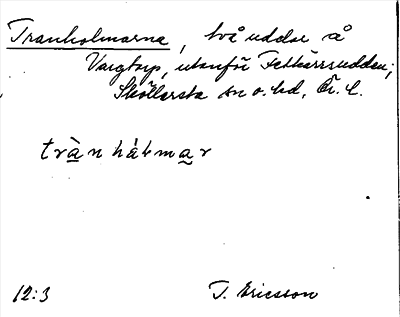 Tranholmarna, två uddar å
Vargtorp, utanför Fetkärrsudden;
Sköllersta sn o. hd, Ör. l.
trànhálmar
12:3 T. Ericsson